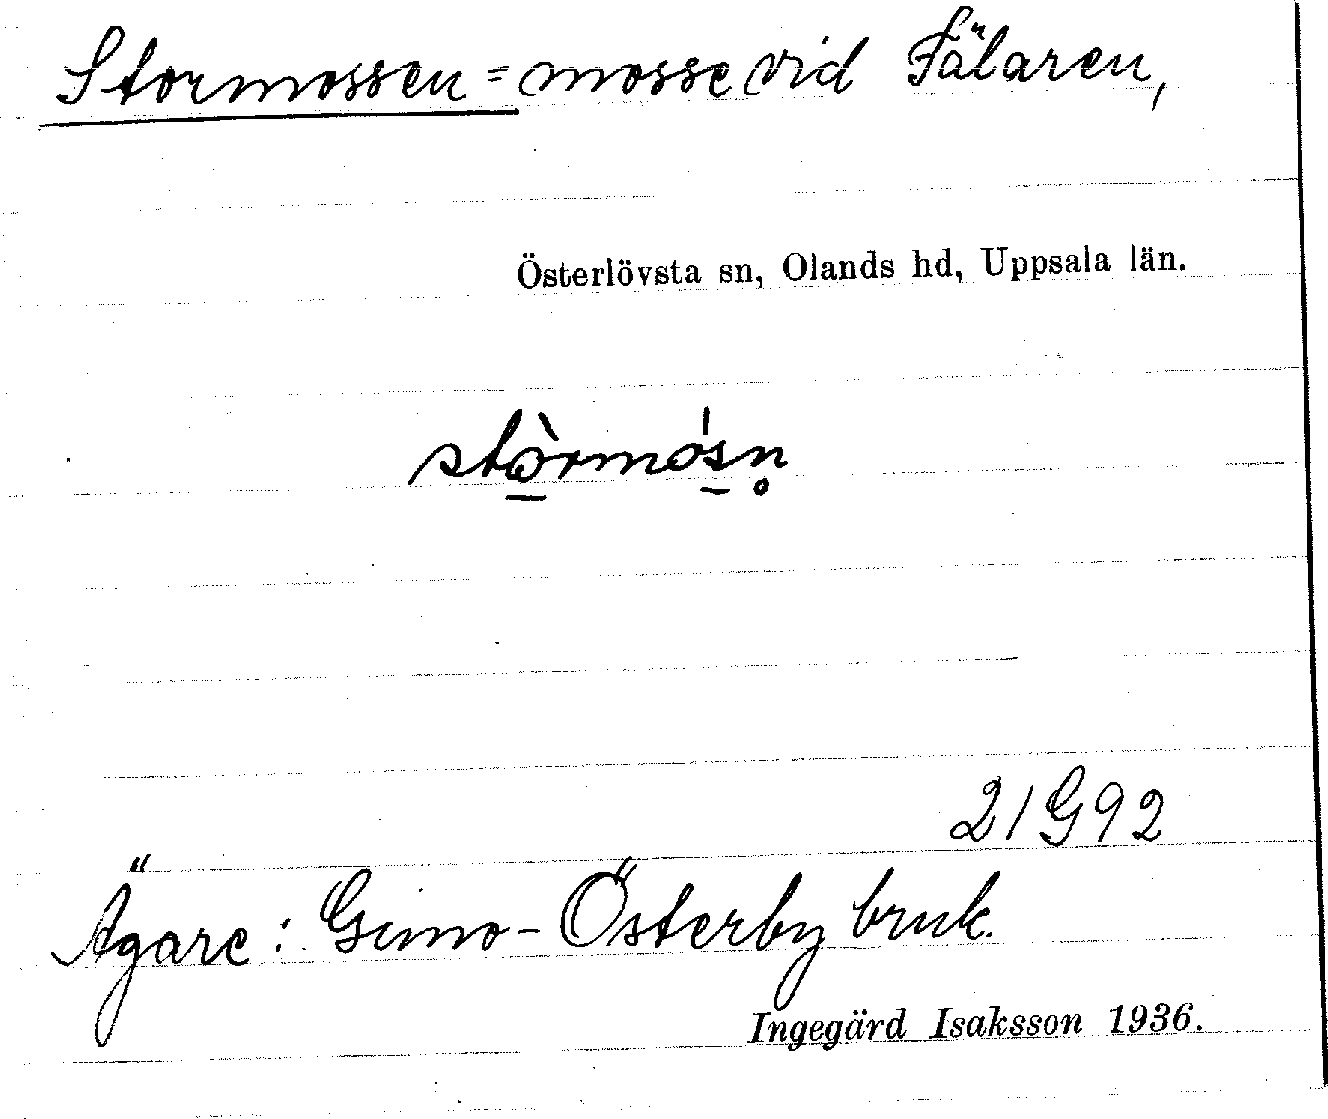 Stormossen = mosse vid Fälaren,
Österlövsta sn, Olands hd, Uppsala län.
stò̱rmós̱n̥
21G92
Ägare: Gimo-Österby bruk.
Ingegärd Isaksson 1936.